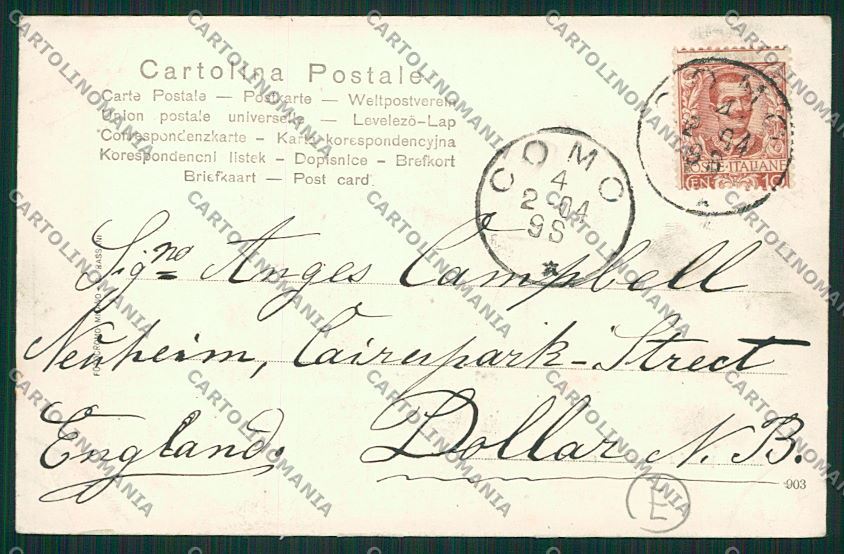 Cartolina Postale
Carte Postale — Postkarte — Weltpostverein
Union postale universelle — Levelező-Lap
Correspondenzkarte — Karta korespondencyjna
Korespondencni listek — Dopisnice — Brefkort
Briefkaart — Post card
COMO
4
2-04
9S
COMO
4
2 04
9S
POSTE ITALIANE
CEN 10
Sigⁿᵒ Anges Campbell
Neuheim, Cairnpark-Street
England. Dollar N. B.
903
E
CARTOLINOMANIA